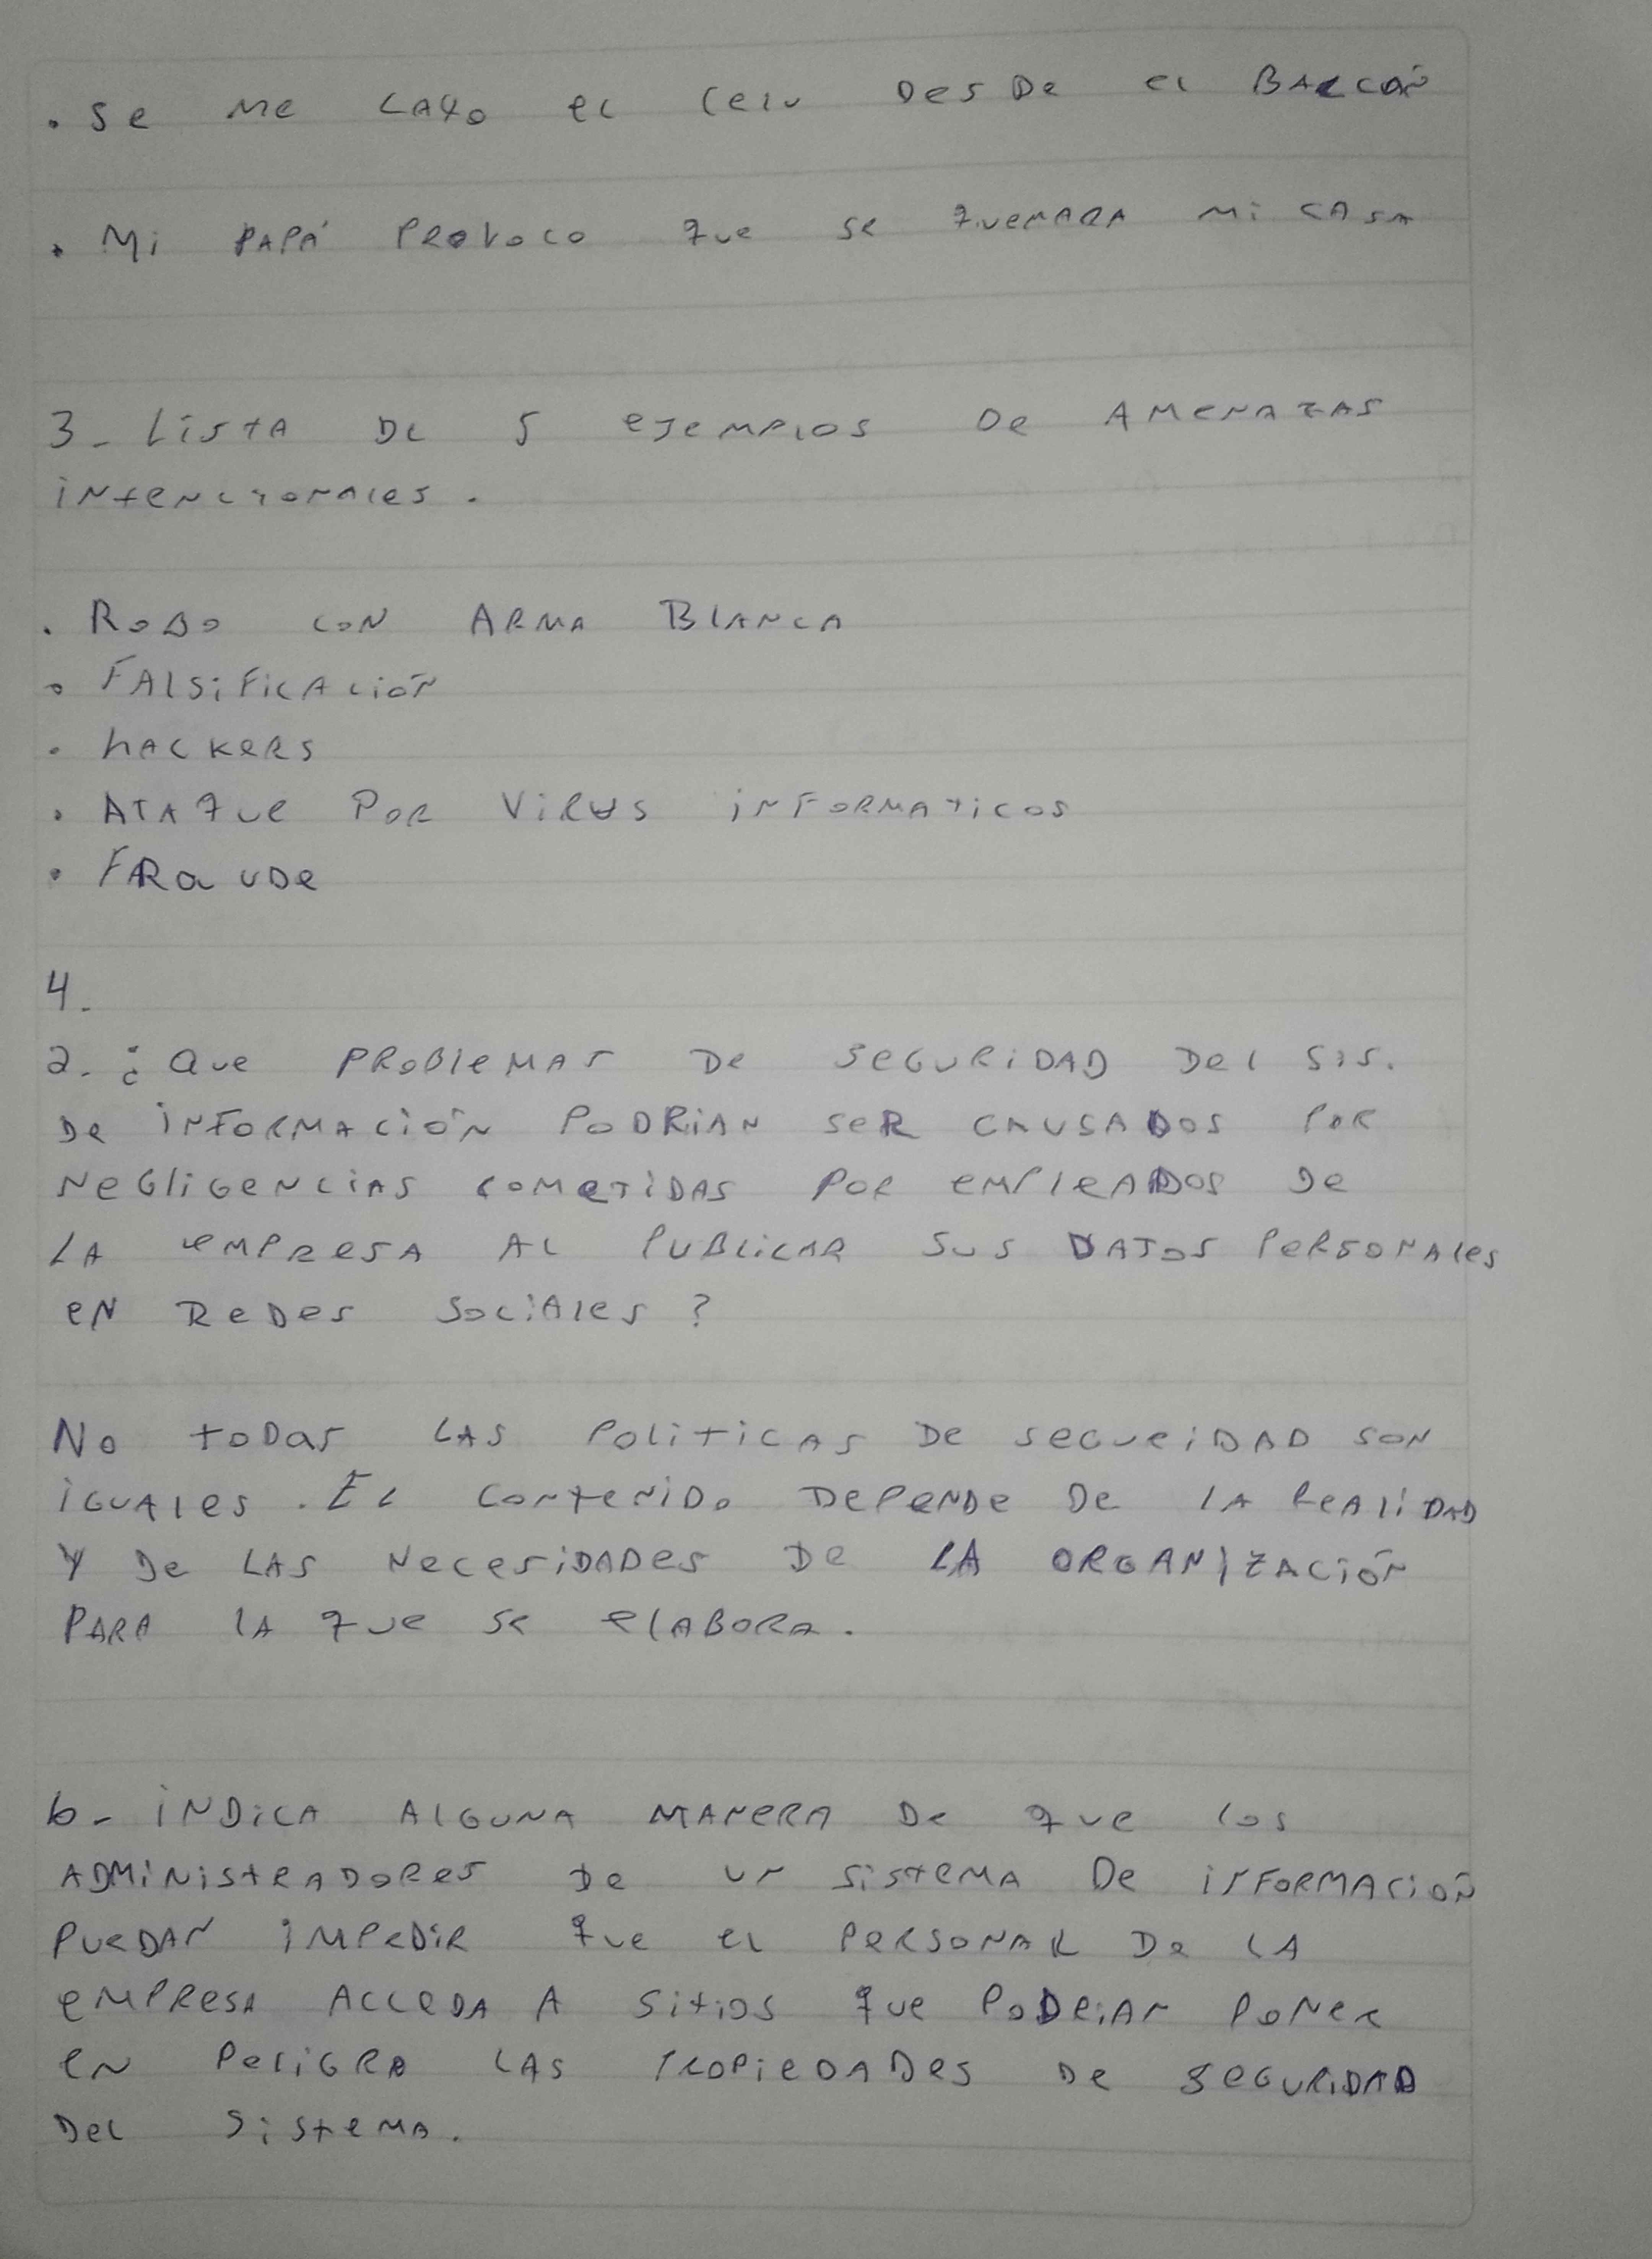 . Se me cayo el celu desde el Balcón
. Mi papá provoco que se quemara mi casa
3- Lista de 5 ejemplos de amenazas
intencionales.
. Robo con arma blanca
. Falsificación
. hackers
. Ataque por virus informaticos
. Fraude
4.
a. ¿Que problemas de seguridad del sis.
de información podrian ser causados por
negligencias cometidas por empleados de
la empresa al publicar sus datos personales
en redes sociales?
No todas las politicas de seguridad son
iguales. El contenido depende de la realidad
y de las necesidades de la organización
para la que se elabora.
b- indica alguna manera de que los
administradores de un sistema de información
puedan impedir que el personal de la
empresa acceda a sitios que podrian poner
en peligro las propiedades de seguridad
del sistema.